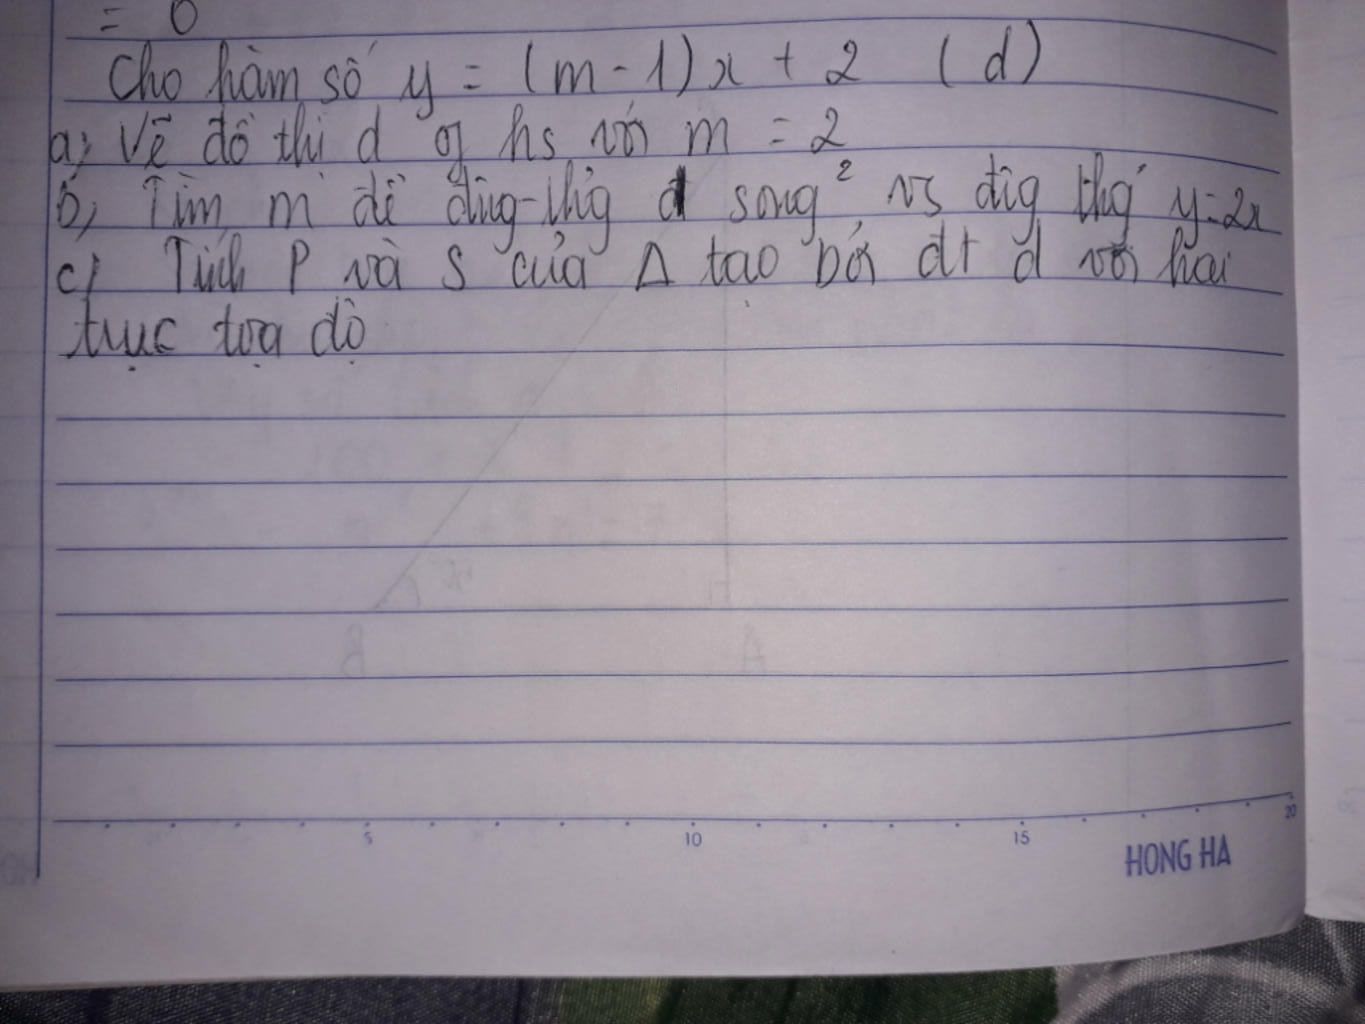 = 0
Cho hàm số y = (m - 1)x + 2 (d)
a; Vẽ đồ thị d of hs với m = 2
b, Tìm m để đừg-thg d song² vs đừg thg y=2x
c, Tính P và S của Δ tạo bởi đt d với hai
trục tọa độ
5 10 15 20
HONG HA